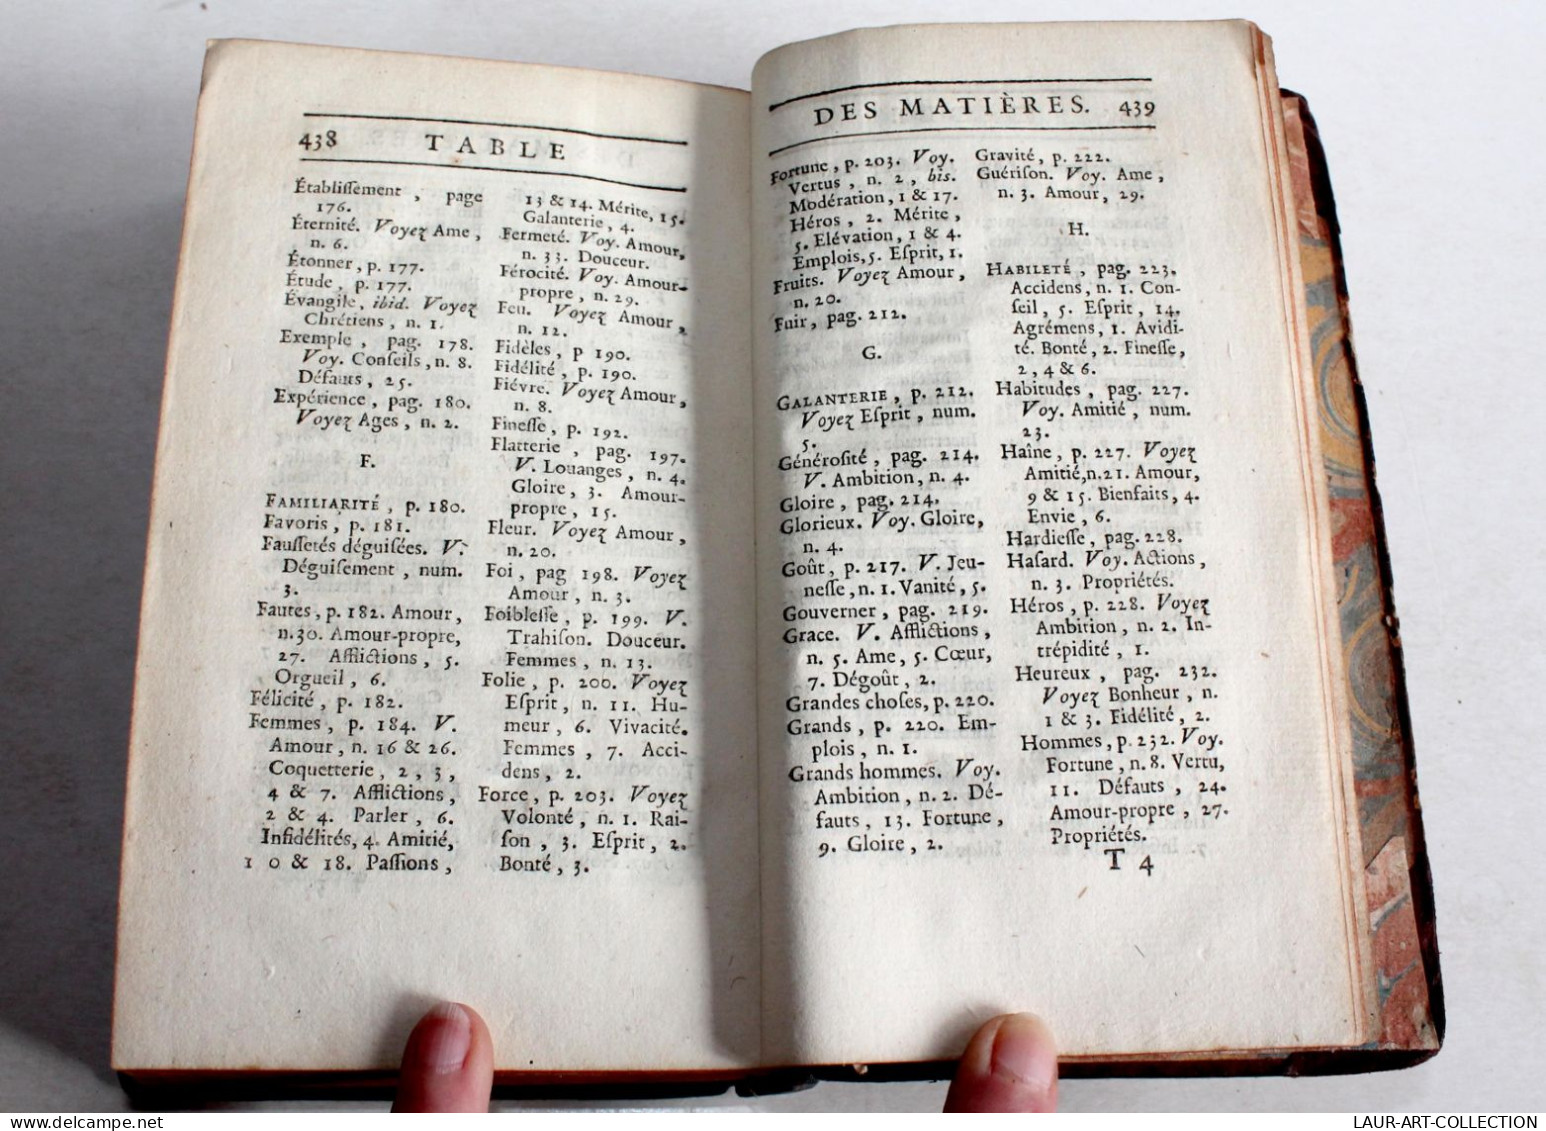 438 TABLE
Établiſſement, page
176.
Éternité. Voyez Ame,
n. 6.
Étonner, p. 177.
Étude, p. 177.
Évangile, ibid. Voyez
Chrétiens, n. 1.
Exemple, pag. 178.
Voy. Conſeils, n. 8.
Défauts, 25.
Expérience, pag. 180.
Voyez Ages, n. 2.
F.
FAMILIARITÉ, p. 180.
Favoris, p. 181.
Fauſſetés déguiſées. V.
Déguiſement, num.
3.
Fautes, p. 182. Amour,
n. 30. Amour-propre,
27. Afflictions, 5.
Orgueil, 6.
Félicité, p. 182.
Femmes, p. 184. V.
Amour, n. 16 & 26.
Coquetterie, 2, 3,
4 & 7. Afflictions,
2 & 4. Parler, 6.
Infidélités, 4. Amitié,
10 & 18. Paſſions,
13 & 14. Mérite, 15.
Galanterie, 4.
Fermeté. Voy. Amour,
n. 33. Douceur.
Férocité. Voy. Amour-
propre, n. 29.
Feu. Voyez Amour,
n. 12.
Fidèles, p 190.
Fidélité, p. 190.
Fiévre. Voyez Amour,
n. 8.
Fineſſe, p. 192.
Flatterie, pag. 197.
V. Louanges, n. 4.
Gloire, 3. Amour-
propre, 15.
Fleur. Voyez Amour,
n. 20.
Foi, pag 198. Voyez
Amour, n. 3.
Foibleſſe, p. 199. V.
Trahiſon. Douceur.
Femmes, n. 13.
Folie, p. 200. Voyez
Eſprit, n. 11. Hu-
meur, 6. Vivacité.
Femmes, 7. Acci-
dens, 2.
Force, p. 203. Voyez
Volonté, n. 1. Rai-
ſon, 3. Eſprit, 2.
Bonté, 3.
DES MATIÈRES. 439
Fortune, p. 203. Voy.
Vertus, n. 2, bis.
Modération, 1 & 17.
Héros, 2. Mérite,
5. Elévation, 1 & 4.
Emplois, 5. Eſprit, 1.
Fruits. Voyez Amour,
n. 20.
Fuir, pag. 212.
G.
GALANTERIE, p. 212.
Voyez Eſprit, num.
5.
Généroſité, pag. 214.
V. Ambition, n. 4.
Gloire, pag. 214.
Glorieux. Voy. Gloire,
n. 4.
Goût, p. 217. V. Jeu-
neſſe, n. 1. Vanité, 5.
Gouverner, pag. 219.
Grace. V. Afflictions,
n. 5. Ame, 5. Cœur,
7. Dégoût, 2.
Grandes choſes, p. 220.
Grands, p. 220. Em-
plois, n. 1.
Grands hommes. Voy.
Ambition, n. 2. Dé-
fauts, 13. Fortune,
9. Gloire, 2.
Gravité, p. 222.
Guériſon. Voy. Ame,
n. 3. Amour, 29.
H.
HABILETÉ, pag. 223.
Accidens, n. 1. Con-
ſeil, 5. Eſprit, 14.
Agrémens, 1. Avidi-
té. Bonté, 2. Fineſſe,
2, 4 & 6.
Habitudes, pag. 227.
Voy. Amitié, num.
23.
Haîne, p. 227. Voyez
Amitié, n. 21. Amour,
9 & 15. Bienfaits, 4.
Envie, 6.
Hardieſſe, pag. 228.
Haſard. Voy. Actions,
n. 3. Propriétés.
Héros, p. 228. Voyez
Ambition, n. 2. In-
trépidité, 1.
Heureux, pag. 232.
Voyez Bonheur, n.
1 & 3. Fidélité, 2.
Hommes, p. 232. Voy.
Fortune, n. 8. Vertu,
11. Défauts, 24.
Amour-propre, 27.
Propriétés.
T 4
©delcampe.net
LAUR-ART-COLLECTION